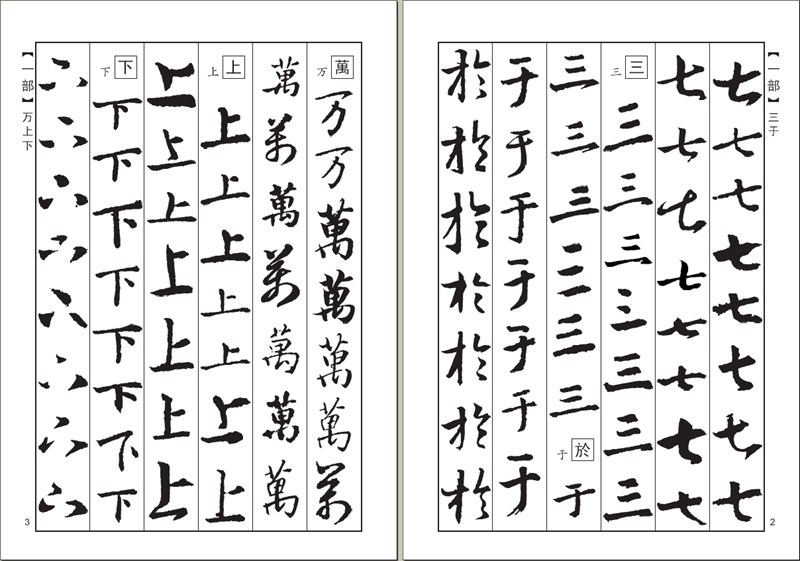 【一部】三于
七七七七七七七七
七七七七七七七七
三 三 三三三三三三三
三三三三三三 於 于 于
于于于于于于于
於於於於於於於
2
萬 万 万万萬萬萬萬萬
萬萬萬萬萬萬萬
上 上 上上上上上上上
上上上上上上上
下 下 下下下下下下下下
下下下下下下下下
【一部】万上下
3